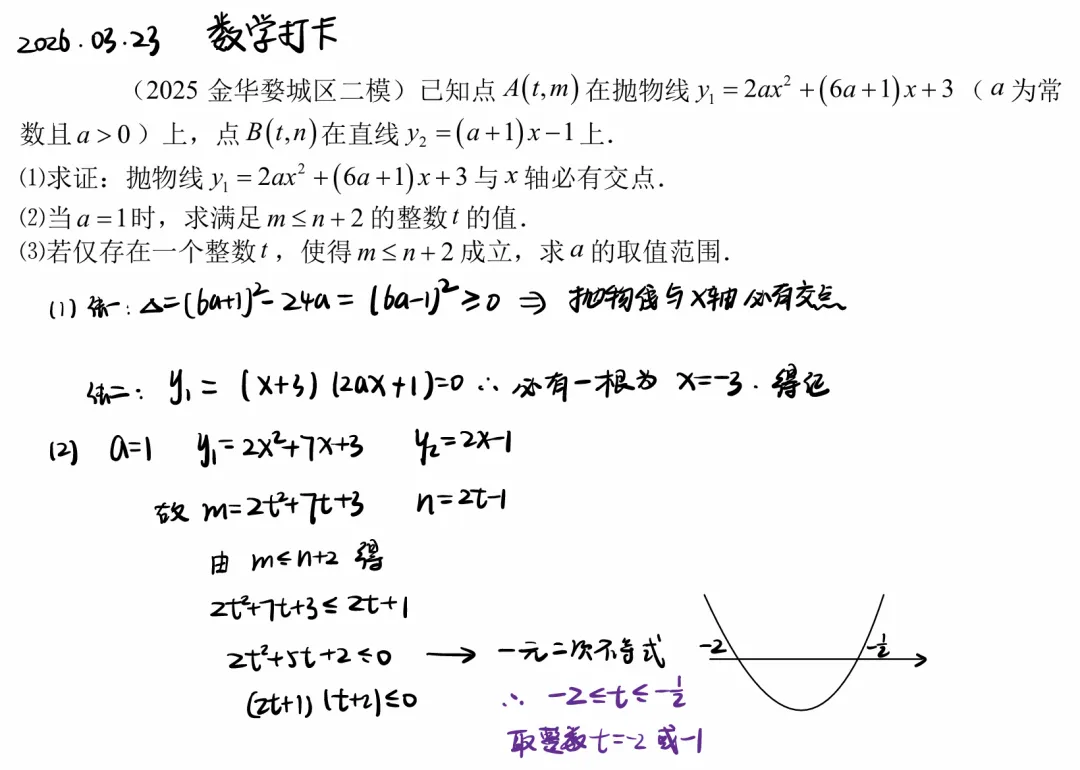 2026.03.23 数学打卡
(2025 金华婺城区二模) 已知点 A(t,m) 在抛物线 y₁ = 2ax² + (6a+1)x + 3 ( a 为常
数且 a > 0 ) 上，点 B(t,n) 在直线 y₂ = (a+1)x − 1 上．
⑴求证：抛物线 y₁ = 2ax² + (6a+1)x + 3 与 x 轴必有交点．
⑵当 a = 1 时，求满足 m ≤ n + 2 的整数 t 的值．
⑶若仅存在一个整数 t ，使得 m ≤ n + 2 成立，求 a 的取值范围．
(1) 法一: Δ=(6a+1)²-24a = (6a-1)² ≥0 ⇒ 抛物线与X轴必有交点
法二: y₁ = (x+3)(2ax+1)=0 ∴ 必有一根为 x=-3. 得证
(2) a=1 y₁=2x²+7x+3 y₂=2x-1
故 m=2t²+7t+3 n=2t-1
由 m≤n+2 得
2t²+7t+3≤2t+1
2t²+5t+2≤0 → 一元二次不等式
-2 -1/2
(2t+1)(t+2)≤0 ∴ -2≤t≤-1/2
取整数t=-2或-1